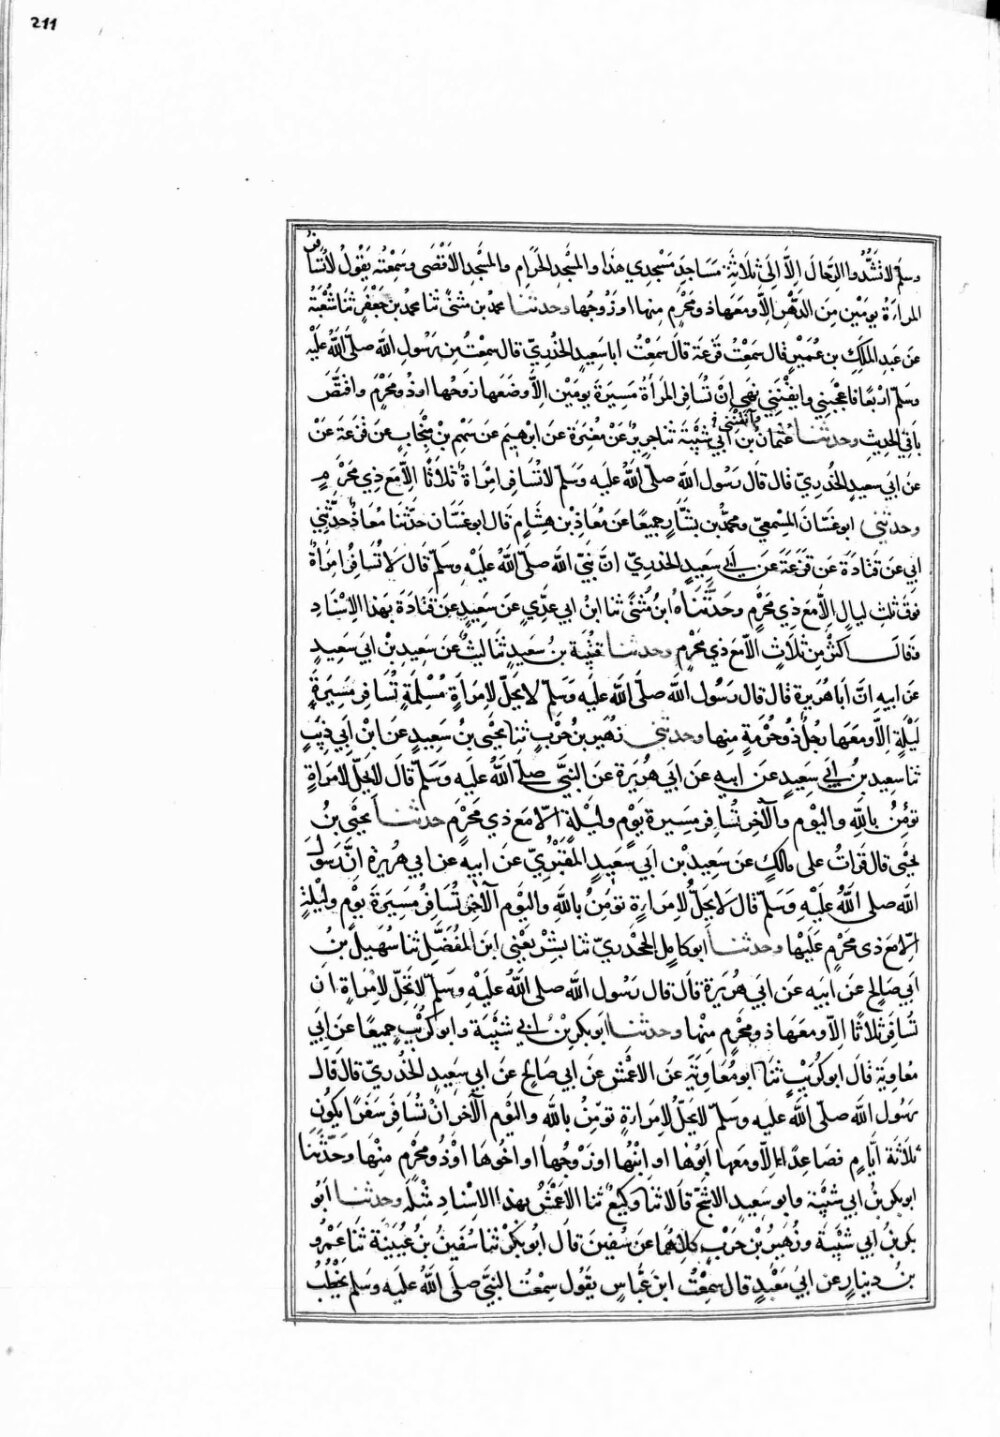 211
وسلم لا تشدوا الرحال الا الى ثلاثة مساجد مسجدي هذا والمسجد الحرام والمسجد الاقصى وسمعته يقول لا تسافر
المراءة يومين من الدهر الا ومعها ذو محرم منها او زوجها وحدثنا محمد بن مثنى ثنا محمد بن جعفر ثنا شعبة
عن عبد الملك بن عمير قال سمعت قزعة قال سمعت ابا سعيد الخدري قال سمعت من رسول الله صلى الله عليه
وسلم اربعا فاعجبنني وايقنني نهى ان تسافر المرأة مسيرة يومين الا ومعها زوجها او ذو محرم واقتص
وآنقنني
باقي الحديث وحدثنا عثمان بن ابي شيبة ثنا جرير عن مغيرة عن ابرهيم عن سهم بن منجاب عن قزعة عن
عن ابي سعيد الخدري قال قال رسول الله صلى الله عليه وسلم لا تسافر امراة ثلاثا الا مع ذي محرم
وحدثني ابو غسان المسمعي ومحمد بن بشار جميعا عن معاذ بن هشام قال ابو غسان حدثنا معاذ حدثني
ابي عن قتادة عن قزعة عن ابي سعيد الخدري ان نبي الله صلى الله عليه وسلم قال لا تسافر امراة
فوق ثلث ليال الا مع ذي محرم وحدثناه ابن مثنى ثنا ابن ابي عدي عن سعيد عن قتادة بهذا الاسناد
وقال اكثر من ثلاث الا مع ذي محرم وحدثنا قتيبة بن سعيد ثنا ليث عن سعيد بن ابي سعيد
عن ابيه ان ابا هريرة قال قال رسول الله صلى الله عليه وسلم لا يحل لامراة مسلمة تسافر مسيرة
ليلة الا ومعها رجل ذو حرمة منها وحدثني زهير بن حرب ثنا يحيى بن سعيد عن ابن ابي ذيب
ثنا سعيد بن ابي سعيد عن ابيه عن ابي هريرة عن النبي صلى الله عليه وسلم قال لا يحل لامراة
تؤمن بالله واليوم والآخر تسافر مسيرة يوم وليلة الا مع ذي محرم حدثنا يحيى بن
يحيى قال قرات على مالك عن سعيد بن ابي سعيد المقبري عن ابيه عن ابي هريرة ان رسول
الله صلى الله عليه وسلم قال لا يحل لامراءة تومن بالله واليوم الآخر تسافر مسيرة يوم وليلة
الا مع ذي محرم عليها وحدثنا ابو كامل الجحدري ثنا بشر يعني ابن المفضل ثنا سهيل بن
ابي صالح عن ابيه عن ابي هريرة قال قال رسول الله صلى الله عليه وسلم لا يحل لامراة ان
تسافر ثلاثا الا ومعها ذو محرم منها وحدثنا ابو بكر بن ابي شيبة وابو كريب جميعا عن ابي
معاوية قال ابو كريب ثنا ابو معاوية عن الاعمش عن ابي صالح عن ابي سعيد الخدري قال قال
رسول الله صلى الله عليه وسلم لا يحل لامراءة تومن بالله واليوم الآخر ان تسافر سفرا يكون
ثلاثة ايام فصاعدا الا ومعها ابوها او ابنها او زوجها او اخوها او ذو محرم منها وحدثنا
ابو بكر بن ابي شيبة وابو سعيد الاشج قالا ثنا وكيع ثنا الاعمش بهذا الاسناد مثله وحدثنا ابو
بكر بن ابي شيبة وزهير بن حرب كلاهما عن سفين قال ابو بكر ثنا سفين بن عيينة ثنا عمرو
بن دينار عن ابي معبد قال سمعت ابن عباس يقول سمعت النبي صلى الله عليه وسلم يخطب